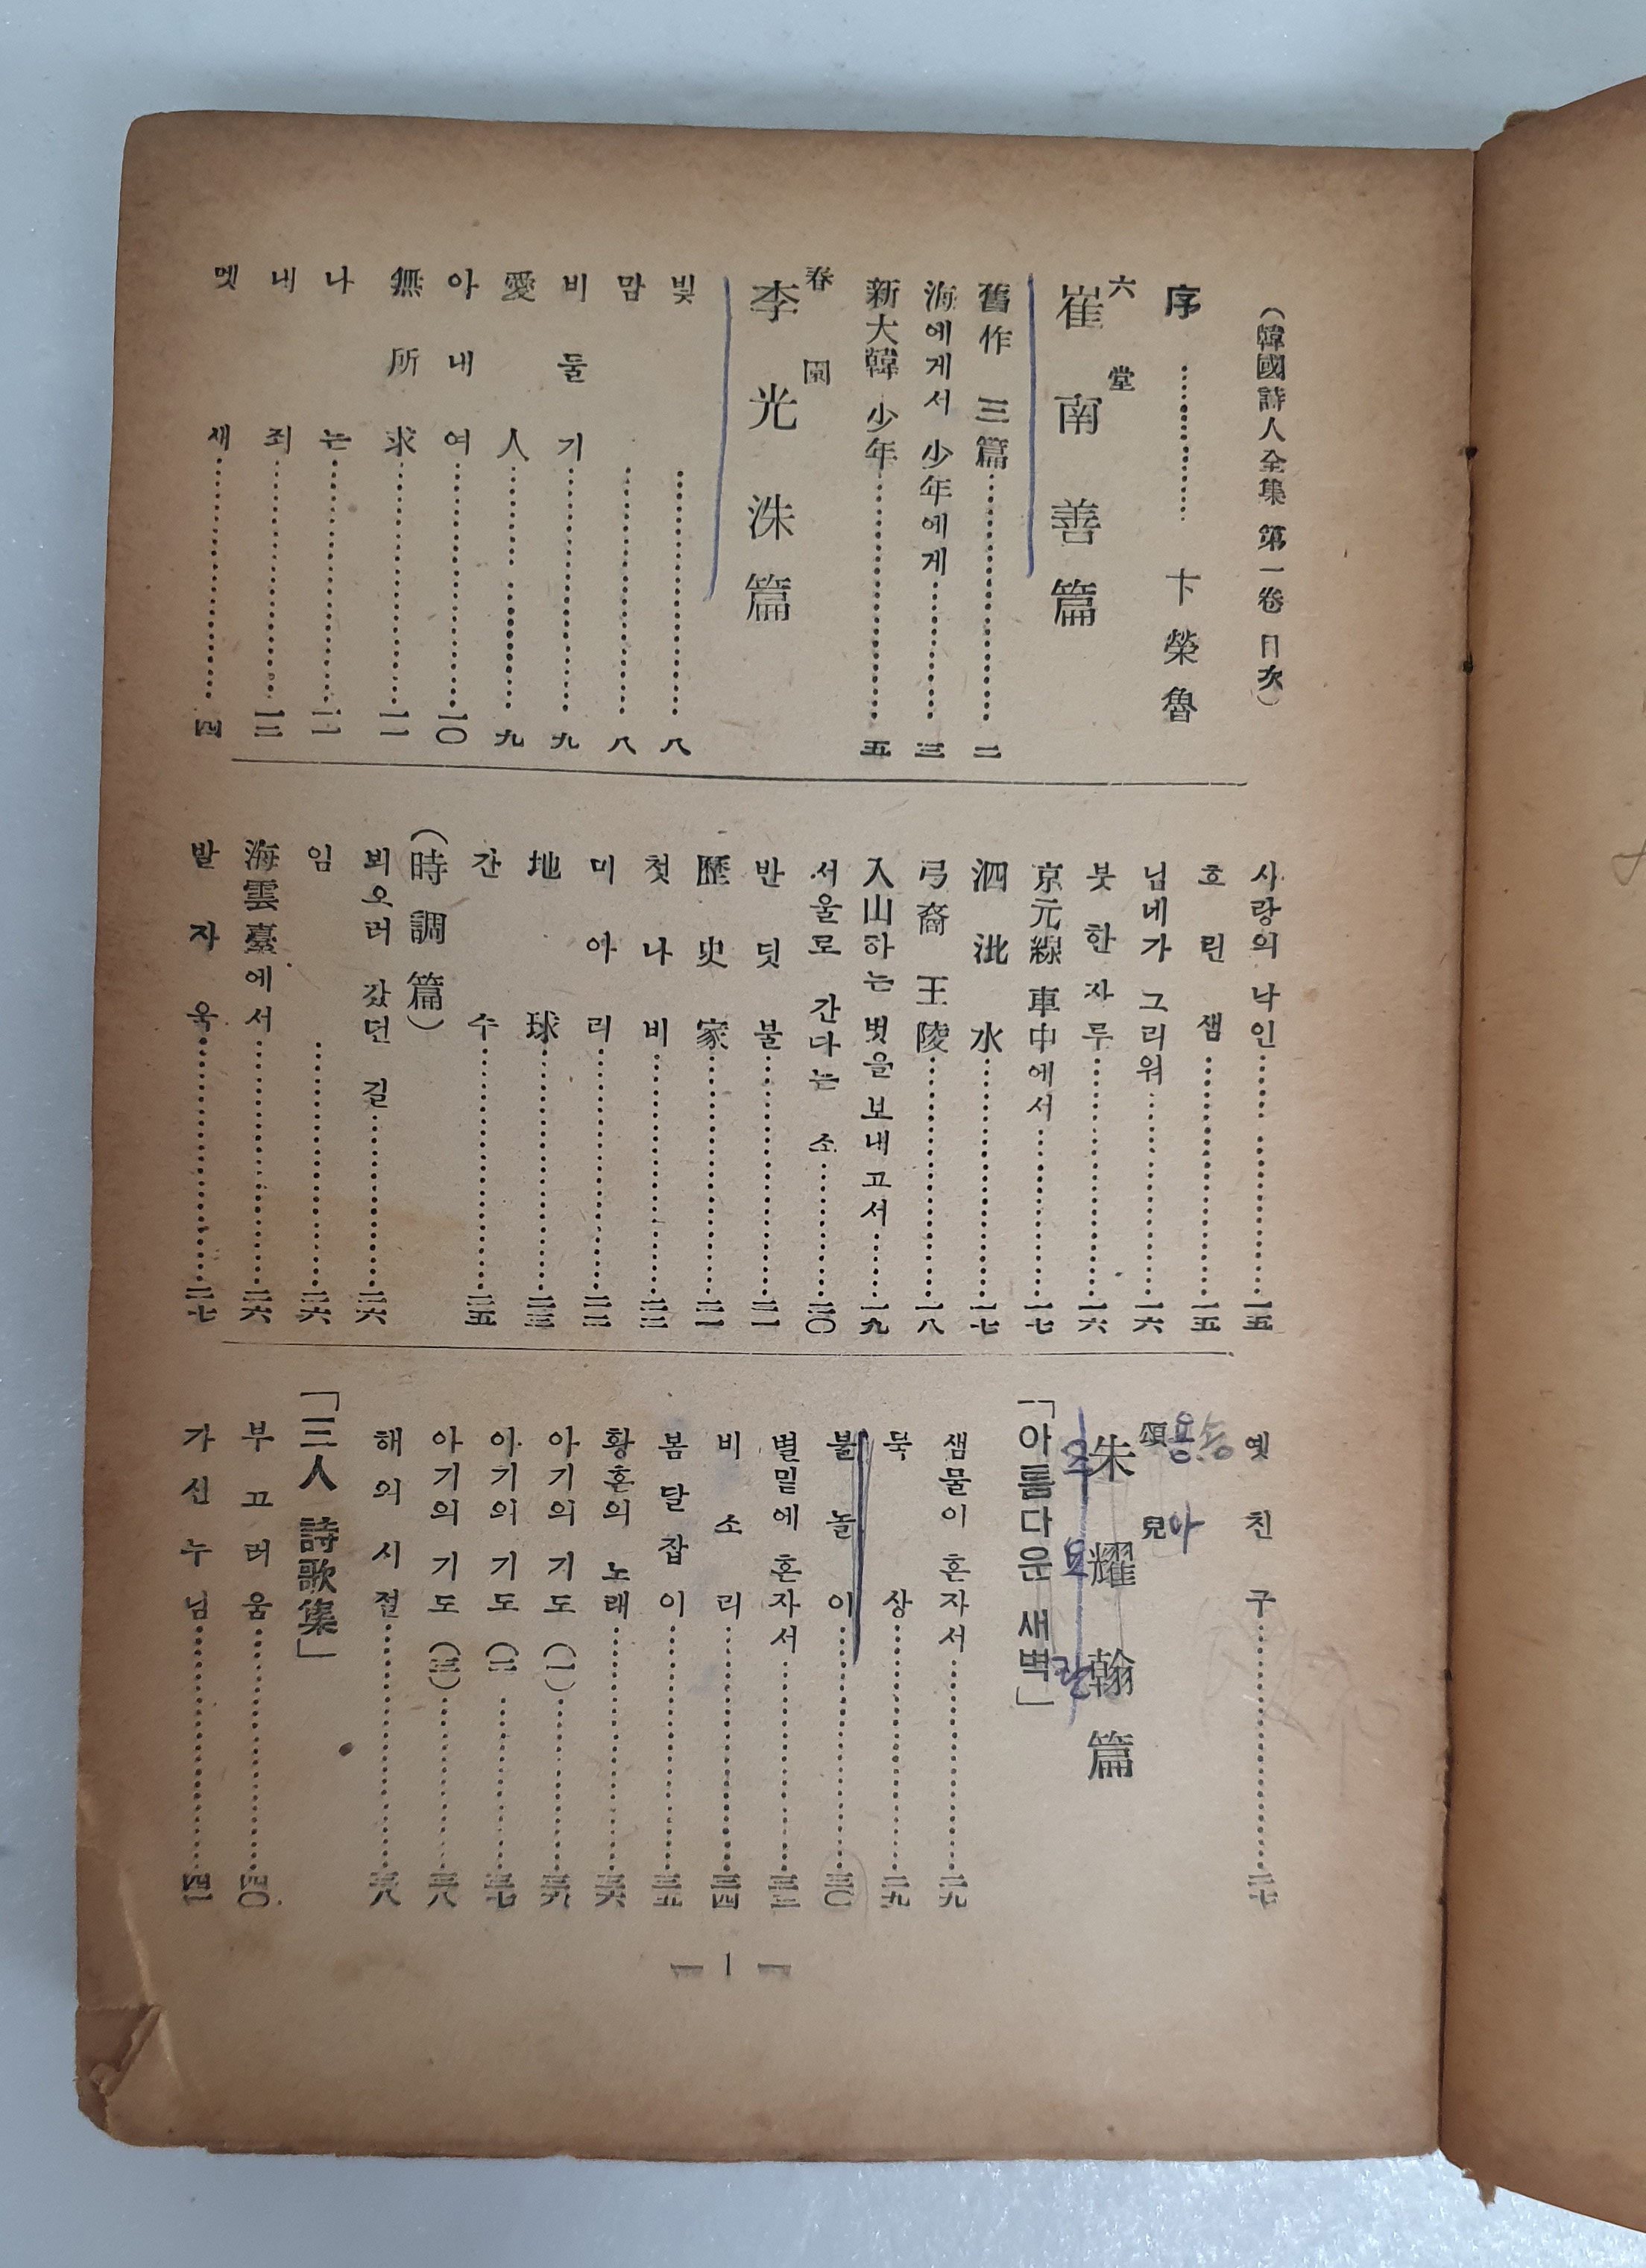 (韓國詩人全集 第一卷 目次)
序 ………… 卞榮魯
六堂
崔南善篇
舊作 三篇 ………… 二
海에게서 少年에게 ………… 三
新大韓 少年 ………… 五
春園
李光洙篇
빛 ………… 八
맘 ………… 八
비둘기 ………… 九
愛人 ………… 九
아내여 ………… 一〇
無所求 ………… 一一
나는 ………… 一二
내죄 ………… 一三
멧새 ………… 四
사랑의 낙인 ………… 一五
흐린 샘 ………… 一五
님네가 그리워 ………… 一六
붓 한 자루 ………… 一六
京元線 車中에서 ………… 一七
泗沘水 ………… 一七
弓裔 王陵 ………… 一八
入山하는 벗을 보내고서 ………… 一九
서울로 간다는 소 ………… 二〇
반딧불 ………… 二一
歷史家 ………… 二一
첫나비 ………… 二二
미아리 ………… 二二
地球 ………… 二三
간수 ………… 二五
(時調篇)
뵈오러 갔던 길 ………… 二六
임 ………… 二六
海雲臺에서 ………… 二六
발자욱 ………… 二七
옛친구 ………… 二七
송아
頌兒
朱耀翰篇
주요한
「아름다운 새벽」
샘물이 혼자서 ………… 二九
눅상 ………… 二九
불놀이 ………… 三〇
별밑에 혼자서 ………… 三三
비소리 ………… 三四
봄달잡이 ………… 三五
황혼의 노래 ………… 三六
아기의 기도 (一) ………… 三六
아기의 기도 (二) ………… 三七
아기의 기도 (三) ………… 三八
해의 시절 ………… 三八
「三人 詩歌集」
부끄러움 ………… 四〇
가신 누님 ………… 四一
— 1 —